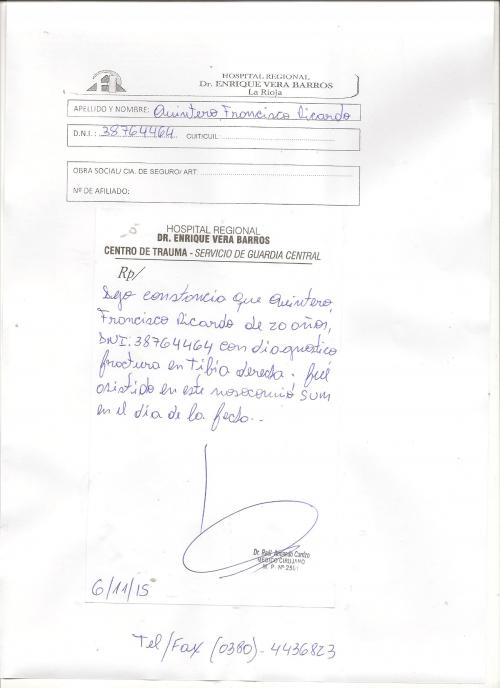 HOSPITAL REGIONAL
Dr. ENRIQUE VERA BARROS
La Rioja
APELLIDO Y NOMBRE: Quintero, Francisco Ricardo
D.N.I.: 38764464 CUIT/CUIL:
OBRA SOCIAL/ CIA. DE SEGURO/ ART
Nº DE AFILIADO:
HOSPITAL REGIONAL
DR. ENRIQUE VERA BARROS
CENTRO DE TRAUMA - SERVICIO DE GUARDIA CENTRAL
Rp/
Dejo constancia que Quintero,
Francisco Ricardo de 20 años,
DNI: 38764464 con diagnostico
fractura en Tibia derecha. fué
asistido en este nosocomio sum
en el dia de la fecha..
Dr. Raúl Cantzo
MEDICO CIRUJANO
M. P. Nº
6/11/15
Tel/Fax (0380)-4436823